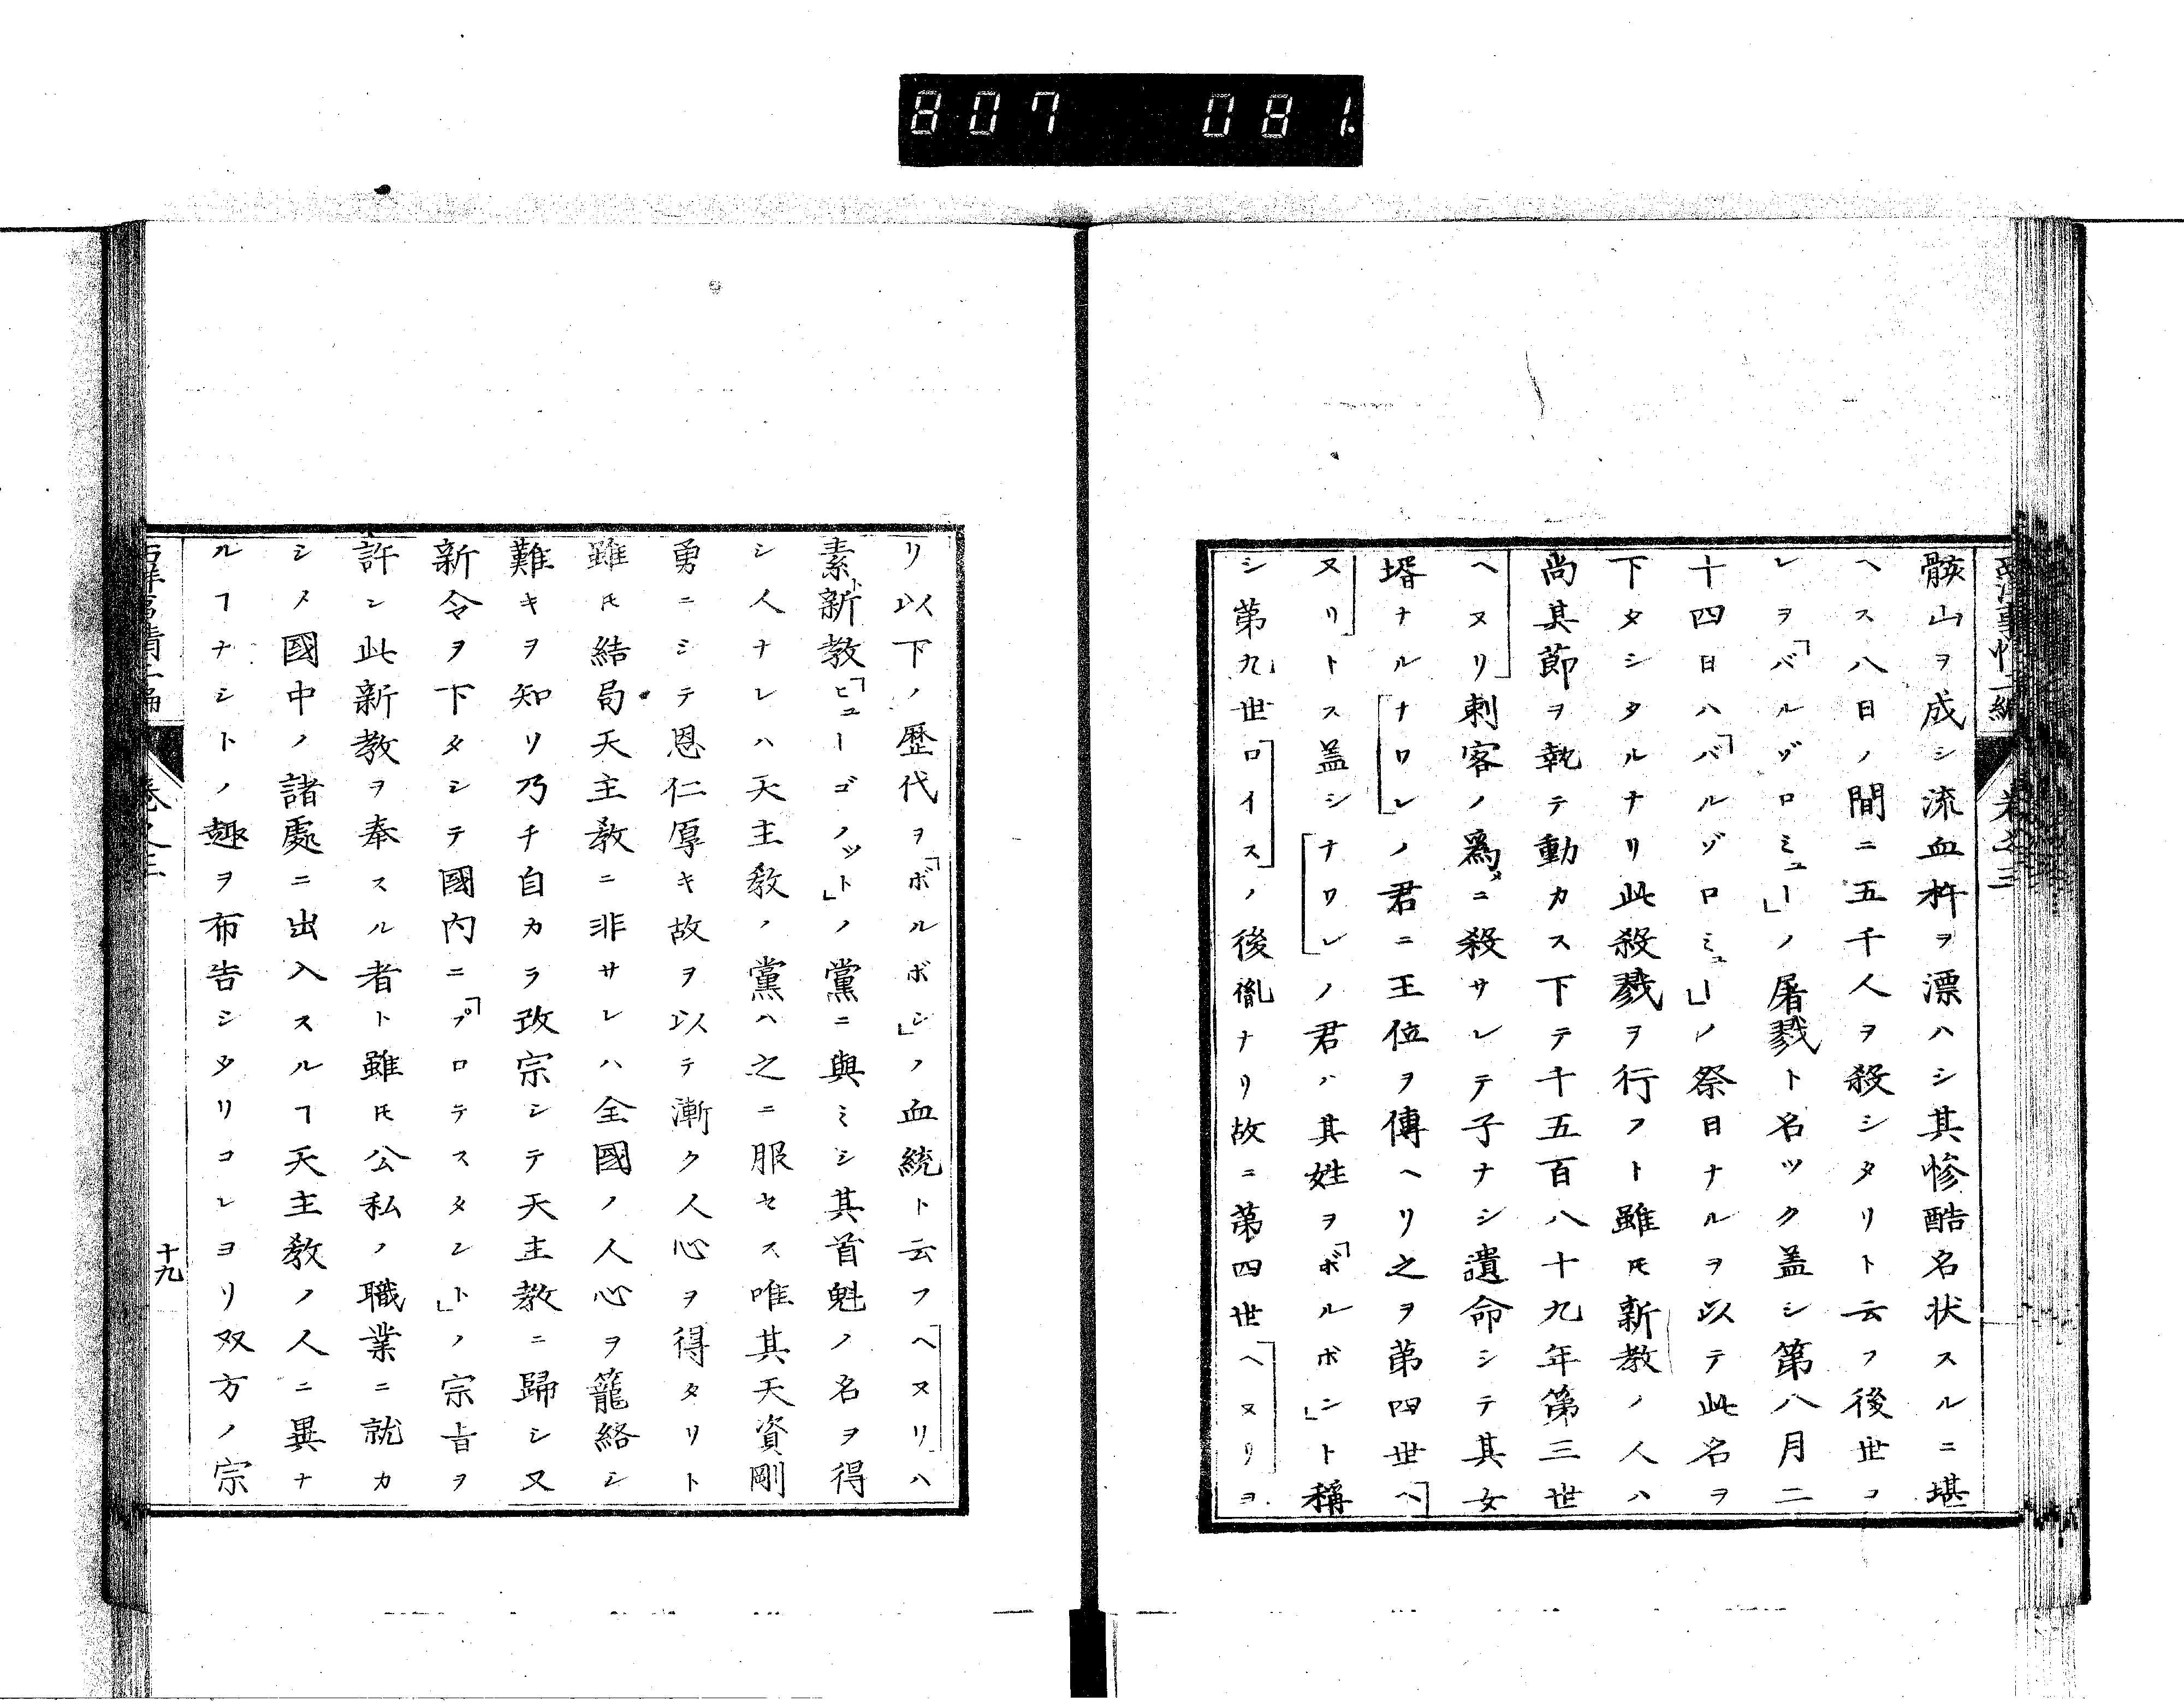 807 081
西洋事情二編 卷之三
骸山ヲ成シ流血杵ヲ漂ハシ其慘酷名状スルニ堪
ヘス八日ノ間ニ五千人ヲ殺シタリト云フ後世コ
レヲ「バルゾロミュー」ノ屠戮ト名ツク盖シ第八月二
十四日ハ「バルゾロミュー」ノ祭日ナルヲ以テ此名ヲ
下タシタルナリ此殺戮ヲ行フト雖𪜈新教ノ人ハ
尚其節ヲ執テ動カス下テ千五百八十九年第三世
ヘヌリ刺客ノ爲メニ殺サレテ子ナシ遺命シテ其女
壻ナルナワレノ君ニ王位ヲ傳ヘリ之ヲ第四世ヘ
ヌリトス盖シナワレノ君ハ其姓ヲ「ボルボン」ト稱
シ第九世ロイスノ後胤ナリ故ニ第四世ヘヌリヲ
リ以下ノ歴代ヲ「ボルボン」ノ血統ト云フヘヌリハ
素ト新教「ヒューゴノット」ノ黨ニ與ミシ其首魁ノ名ヲ得
シ人ナレハ天主教ノ黨ハ之ニ服セス唯其天資剛
勇ニシテ恩仁厚キ故ヲ以テ漸ク人心ヲ得タリト
雖𪜈結局天主教ニ非サレハ全國ノ人心ヲ籠絡シ
難キヲ知リ乃チ自カラ改宗シテ天主教ニ歸シ又
新令ヲ下タシテ國内ニ「プロテスタント」ノ宗旨ヲ
許シ此新教ヲ奉スル者ト雖𪜈公私ノ職業ニ就カ
シメ國中ノ諸處ニ出入スルヿ天主教ノ人ニ異ナ
ルヿナシトノ趣ヲ布告シタリコレヨリ双方ノ宗
十九